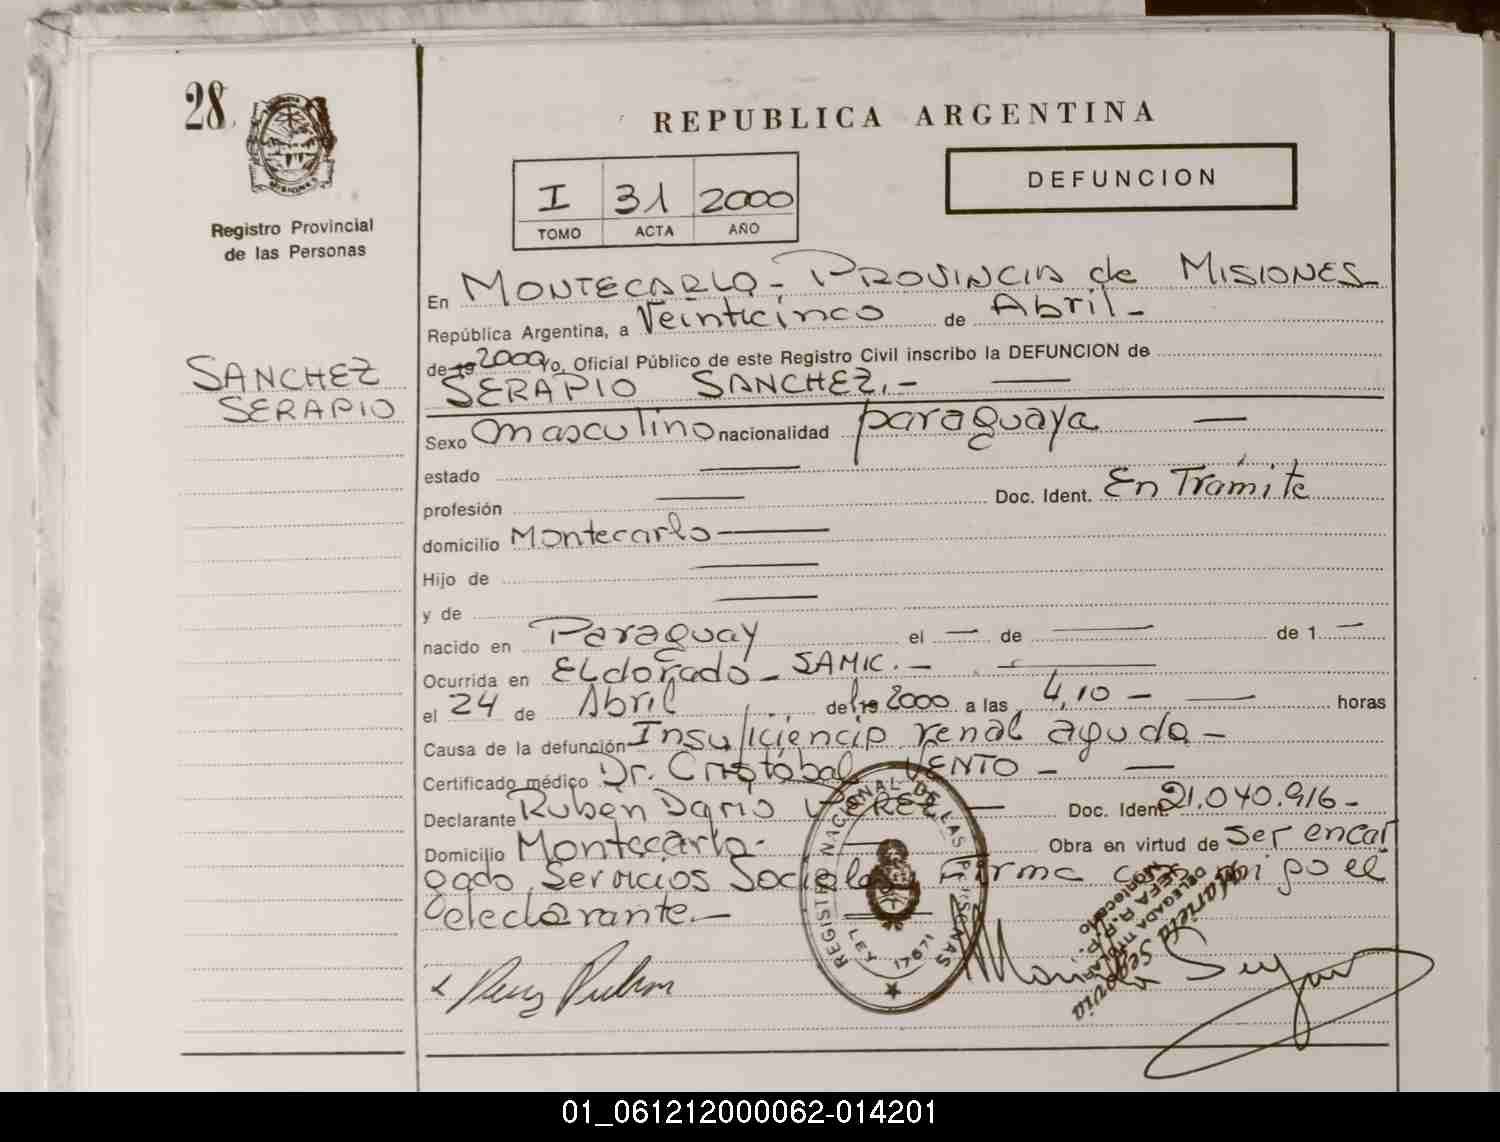 28.
MISIONES
Registro Provincial
de las Personas
SANCHEZ
SERAPIO
REPUBLICA ARGENTINA
DEFUNCION
I 31 2000
TOMO ACTA AÑO
En MONTECARLO - PROVINCIA de MISIONES
República Argentina, a Veinticinco de Abril -
de 19 2000 yo, Oficial Público de este Registro Civil inscribo la DEFUNCION de
SERAPIO SANCHEZ.-
Sexo masculino nacionalidad paraguaya
estado
profesión Doc. Ident. En Trámite
domicilio Montecarlo
Hijo de
y de
nacido en Paraguay el — de — de 1 —
Ocurrida en ELdorado - SAMIC. -
el 24 de Abril del 19 2000 a las 4,10 - horas
Causa de la defunción Insuficiencia renal aguda -
Certificado médico Dr. Cristobal VENTO -
Declarante Ruben Dario PEREZ — Doc. Ident. 21.040.916-
Domicilio Montecarlo- Obra en virtud de ser encar
gado Servicios Sociales Firma conmigo el
declarante. -
REGISTRO NACIONAL DE LAS PERSONAS
LEY 17671
Perez Ruben
Mariela Segovia
DELEGADA TITULAR
JEFA R.P.P.
Montecarlo
01_061212000062-014201